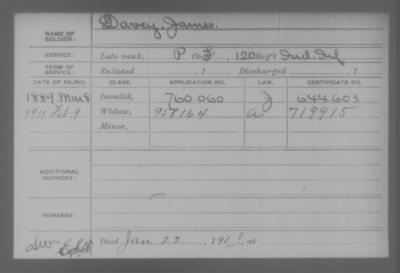 NAME OF SOLDIER: Davey, James.
SERVICE: Late rank, P Co. F, 120 Reg't Ind. Inf
TERM OF SERVICE: Enlisted , 1 Discharged , 1
DATE OF FILING. CLASS. APPLICATION NO. LAW. CERTIFICATE NO.
1889 Mar 8 Invalid, 760.060 J 644.603
1911 Feb. 9 Widow, 958164 a 719915
Minor,
ADDITIONAL SERVICES:
REMARKS:
Died Jan 22, 191 at